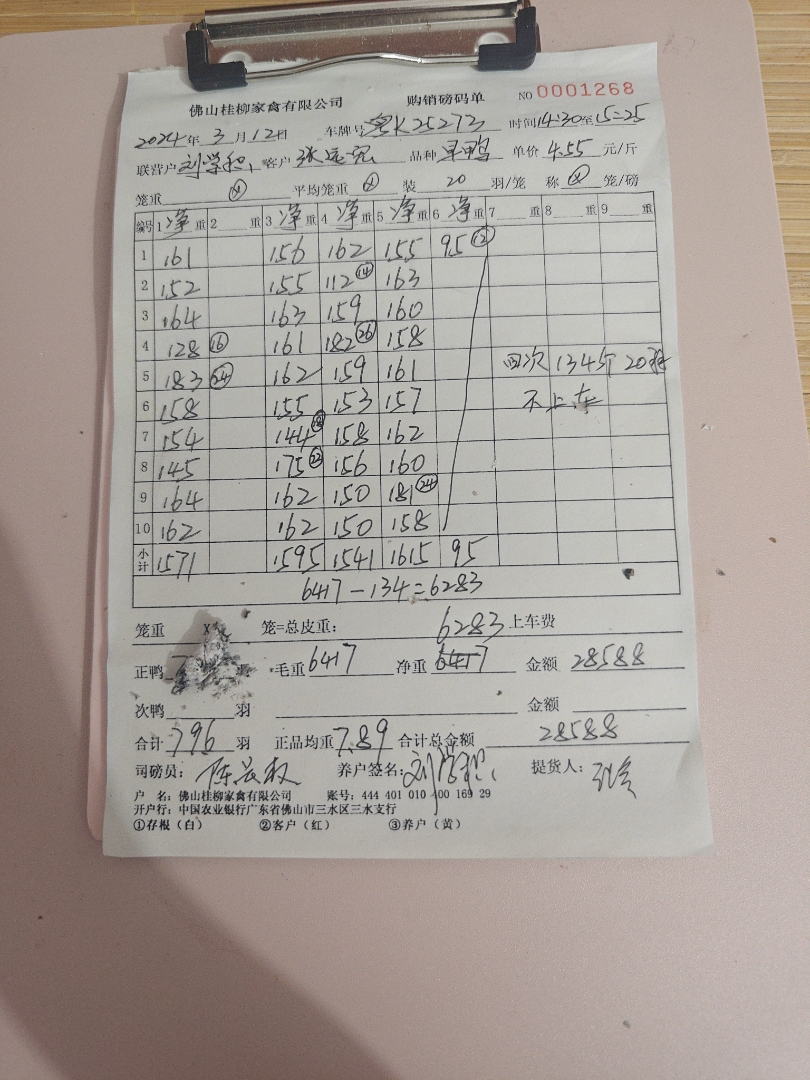 佛山桂柳家禽有限公司 购销磅码单 NO 0001268
2024年3月12日 车牌号 粤K25273 时间14:30至15:25
联营户 刘学和 客户 张 品种 旱鸭 单价 4.55 元/斤
笼重 平均笼重 装 20 羽/笼 称 笼/磅
编号 1 净重 2 重 3 净重 4 净重 5 净重 6 净重 7 重 8 重 9 重
1 161 156 162 155 95 ⑫
2 152 155 112 ⑭ 163
3 164 163 159 160
4 128 ⑯ 161 182 ㉖ 158
5 183 ㉔ 162 159 161 四次 134斤 20羽
6 158 155 153 157 不上车
7 154 144 ⑱ 158 162
8 145 175 ㉒ 156 160
9 164 162 150 181 ㉔
10 162 162 150 158
小计 1571 1595 1541 1615 95
6417-134=6283
笼重 X 笼=总皮重: 6283 上车费
正鸭 毛重 6417 净重 6417 金额 28588
次鸭 羽 金额
合计 796 羽 正品均重 7.89 合计总金额 28588
司磅员: 养户签名: 刘学和 提货人:
户 名: 佛山桂柳家禽有限公司 账号: 444 401 010 400 169 29
开户行: 中国农业银行广东省佛山市三水区三水支行
①存根(白) ②客户(红) ③养户(黄)